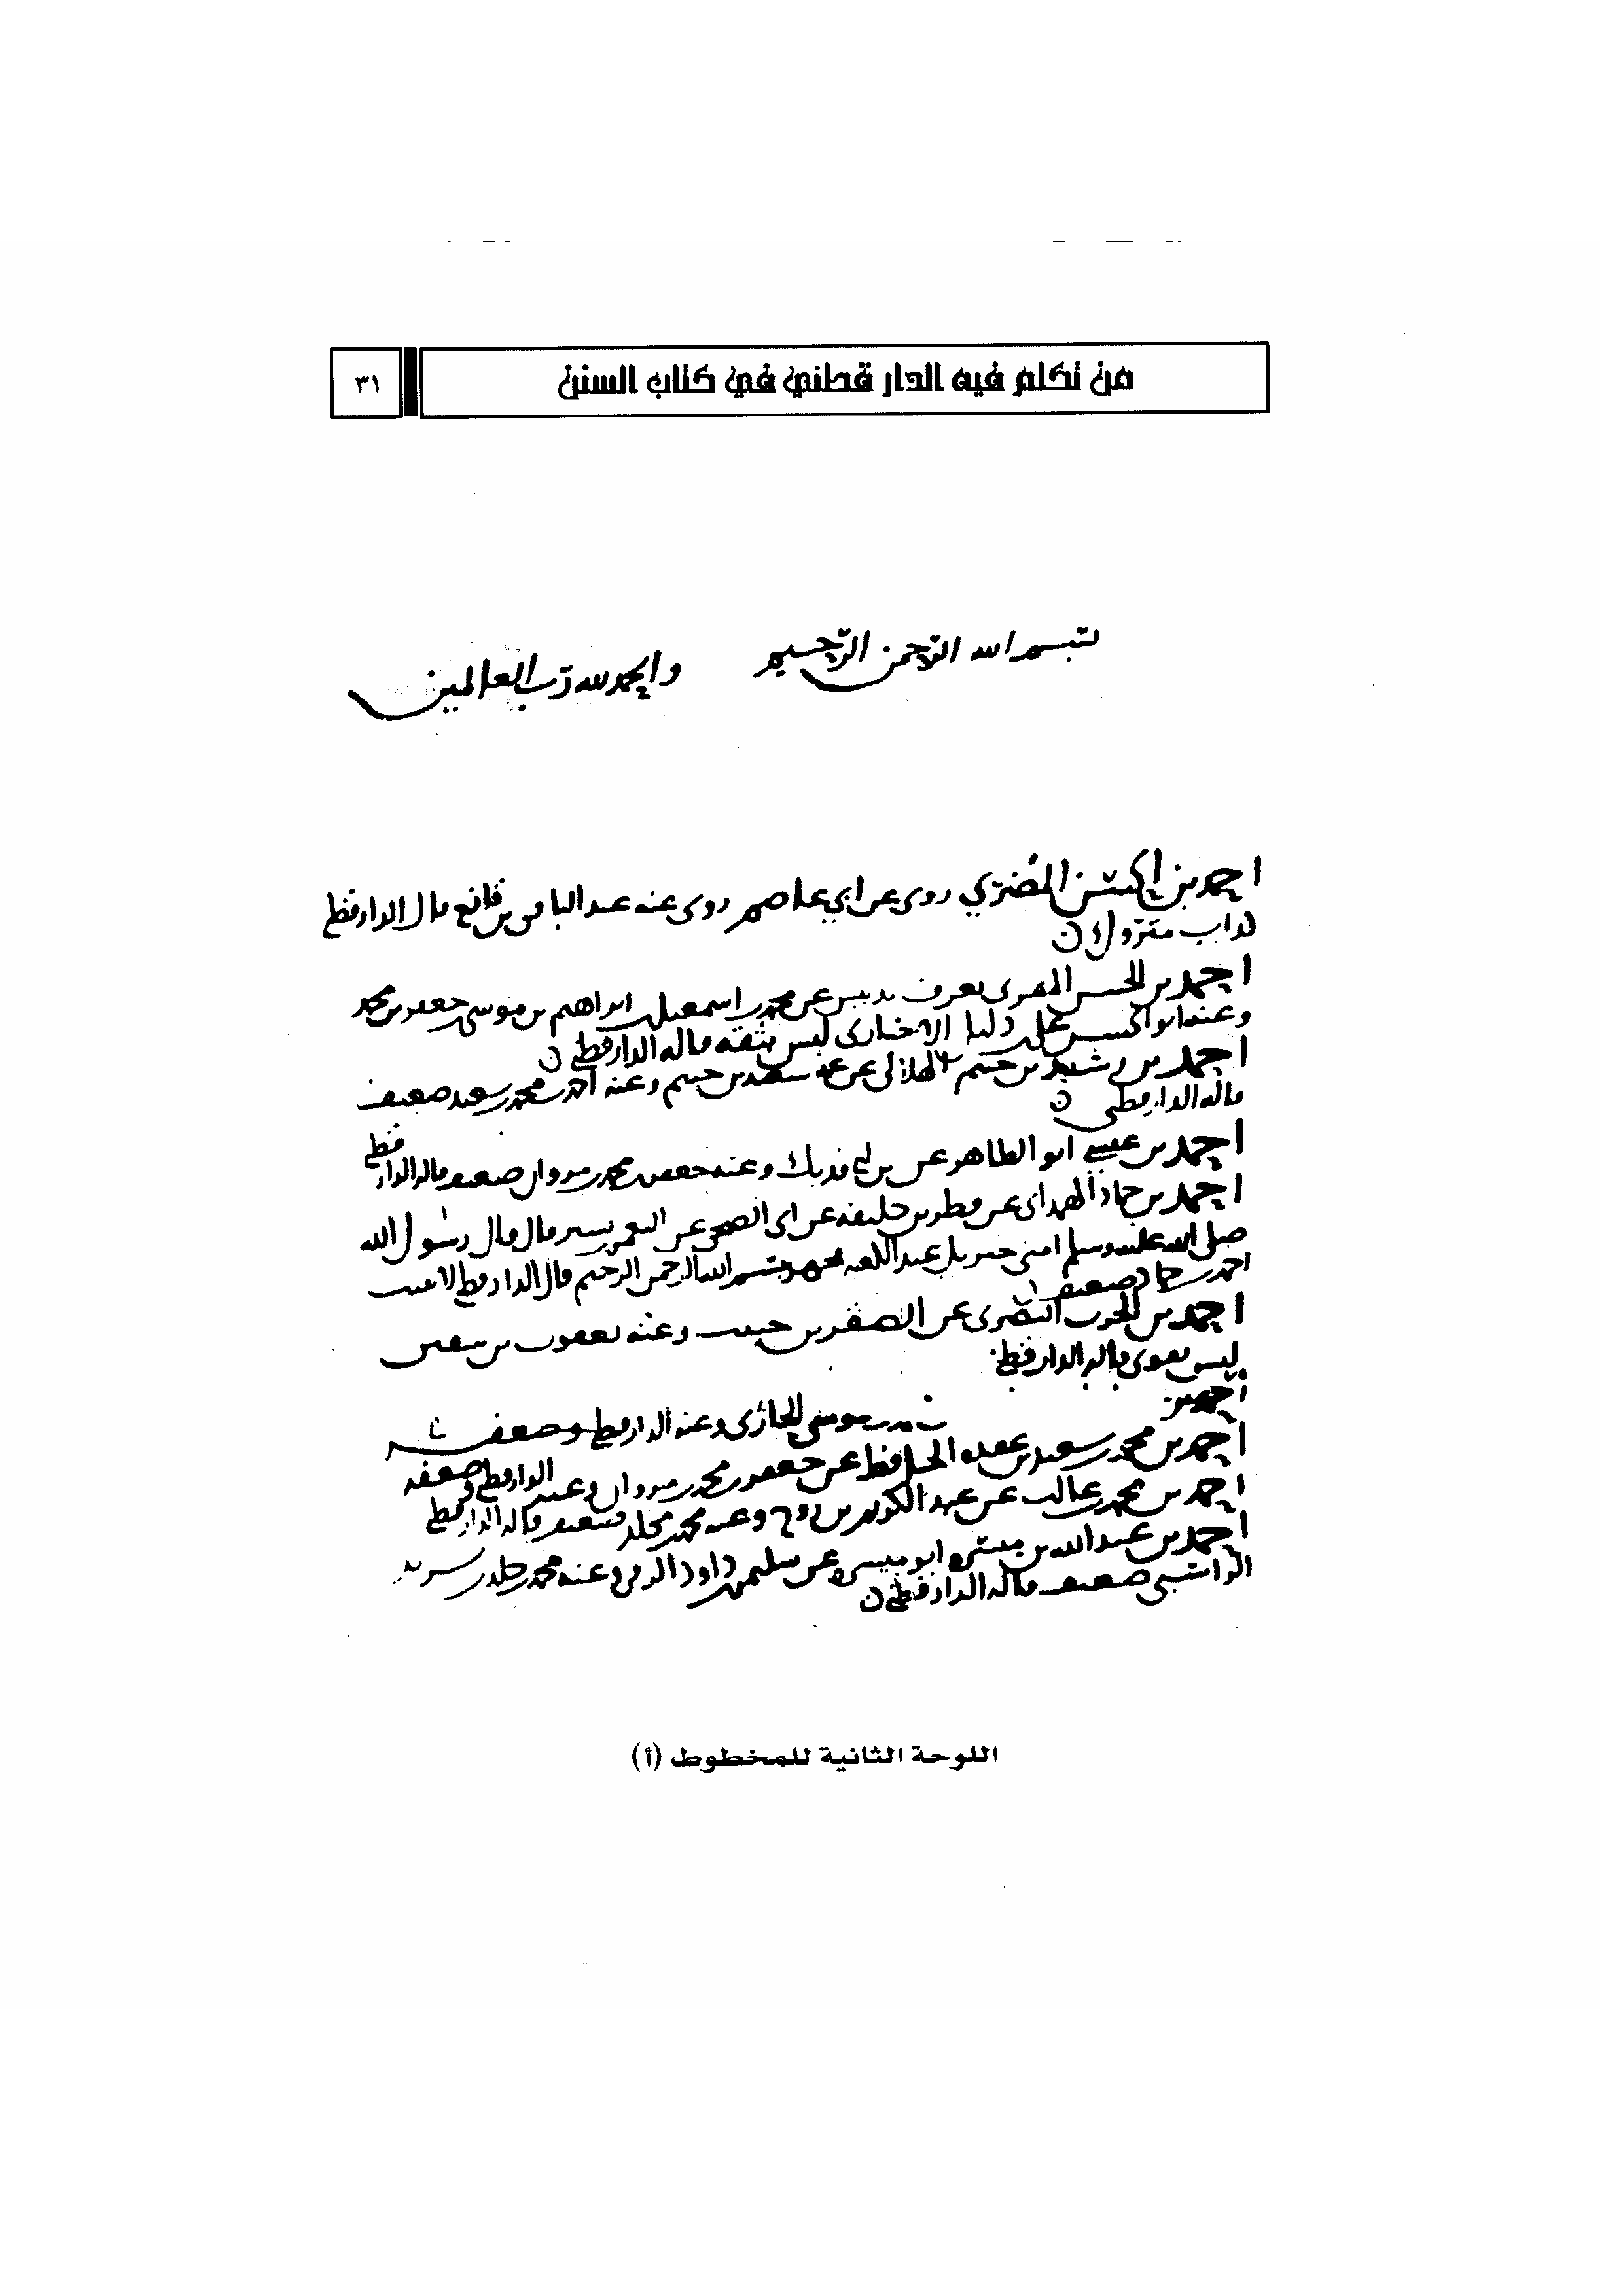 من تكلم فيه الدار قطني في كتاب السنن
٣١
بسم الله الرحمن الرحيم والحمد لله رب العالمين
احمد بن الحسن المضري روى عن ابي عاصم روى عنه عبد الباقي بن قانع قال الدارقطني
كذاب متروك ن
احمد بن الحسن المقرى يعرف بدبيس عن محمد بن اسمعيل ابراهيم بن موسى جعفر بن محمد
وعنه ابو الحسن علي دليل الاخبارى ليس بثقه قاله الدارقطني ن
احمد بن رشد بن خثيم الهلالى عن عمه سعيد بن خثيم وعنه احمد بن محمد بن سعيد ضعيف
قاله الدارقطني ن
احمد بن عيسى ابو الطاهر عن بن ابي فديك وعنه جعفر بن محمد بن مروان ضعيف قاله الدارقطني
احمد بن حماد الهمداني عن فطر بن خليفه عن ابي الضحى عن النعمن بن بشير قال قال رسول الله
صلى الله عليه وسلم امني جبريل عند الكعبه فجهر ببسم الله الرحمن الرحيم قال الدارقطني
احمد بن حماد ضعيف
احمد بن الحرث البصرى عن الصقر بن حبيب وعنه يعقوب بن سفين
ليس بقوى قاله الدارقطني
احمد بن
بن موسى وعنه الدارقطني وضعفه
احمد بن محمد بن سعيد بن عقده الحافظ عن جعفر بن محمد بن مروان وعنه الدارقطني ضعفه
احمد بن محمد بن غالب عن عبد الكريم بن روح وعنه محمد بن مخلد ضعيف قاله الدارقطني
احمد بن عبد الله بن ميسره ابو ميسره عن سليمن بن داود الرقي وعنه محمد بن خلد بن يزيد
الراسبي ضعيف قاله الدارقطني ن
اللوحة الثانية للمخطوط (أ)